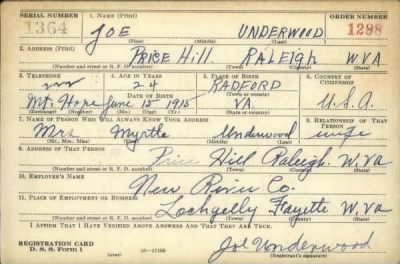 SERIAL NUMBER 1. NAME (Print) ORDER NUMBER
1364 JOE UNDERWOOD 1298
(First) (Middle) (Last)
2. ADDRESS (Print)
PRICE Hill. RALEIGH W VA
(Number and street or R. F. D. number) (Town) (County) (State)
3. TELEPHONE 4. AGE IN YEARS 5. PLACE OF BIRTH 6. COUNTRY OF CITIZENSHIP
24 RADFORD
DATE OF BIRTH (Town or county)
Mt. Hope June 15 1915 VA. U.S.A
(Exchange) (Number) (Mo.) (Day) (Yr.) (State or country)
7. NAME OF PERSON WHO WILL ALWAYS KNOW YOUR ADDRESS 8. RELATIONSHIP OF THAT PERSON
Mrs Myrtle Underwood wife
(Mr., Mrs., Miss) (First) (Middle) (Last)
9. ADDRESS OF THAT PERSON
Price Hill Raleigh. W. Va
(Number and street or R. F. D. number) (Town) (County) (State)
10. EMPLOYER'S NAME
New River Co.
11. PLACE OF EMPLOYMENT OR BUSINESS
Lochgelly Fayette W. Va
(Number and street or R. F. D. number) (Town) (County) (State)
I AFFIRM THAT I HAVE VERIFIED ABOVE ANSWERS AND THAT THEY ARE TRUE.
REGISTRATION CARD
D. S. S. Form 1 (over) 16—17105 Joe Underwood
(Registrant's signature)